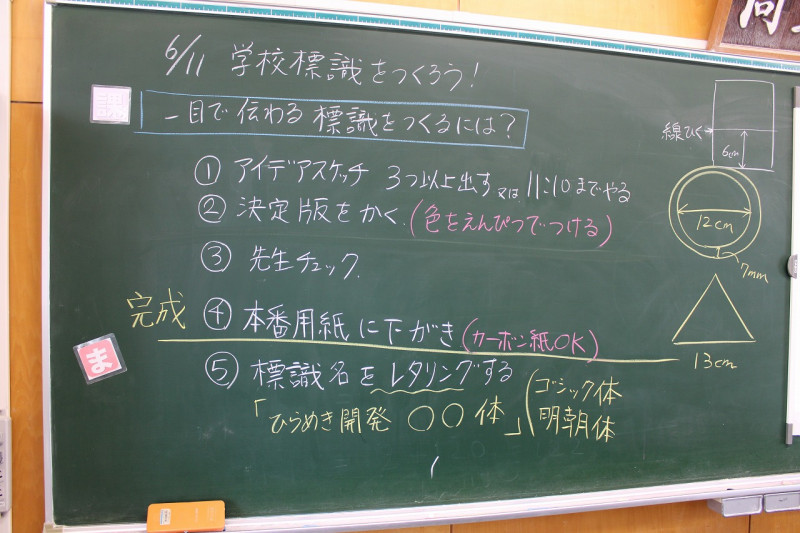 向
6/11 学校標識をつくろう!
課
一目で伝わる標識をつくるには?
① アイデアスケッチ 3つ以上出す 又は 11:10までやる
② 決定版をかく (色をえんぴつでつける)
③ 先生チェック
完成 ④ 本番用紙に下がき (カーボン紙OK)
ま
⑤ 標識名をレタリングする
「ひらめき開発 ○○体」(ゴシック体
明朝体
線ひく
6cm
12cm
7mm
13cm